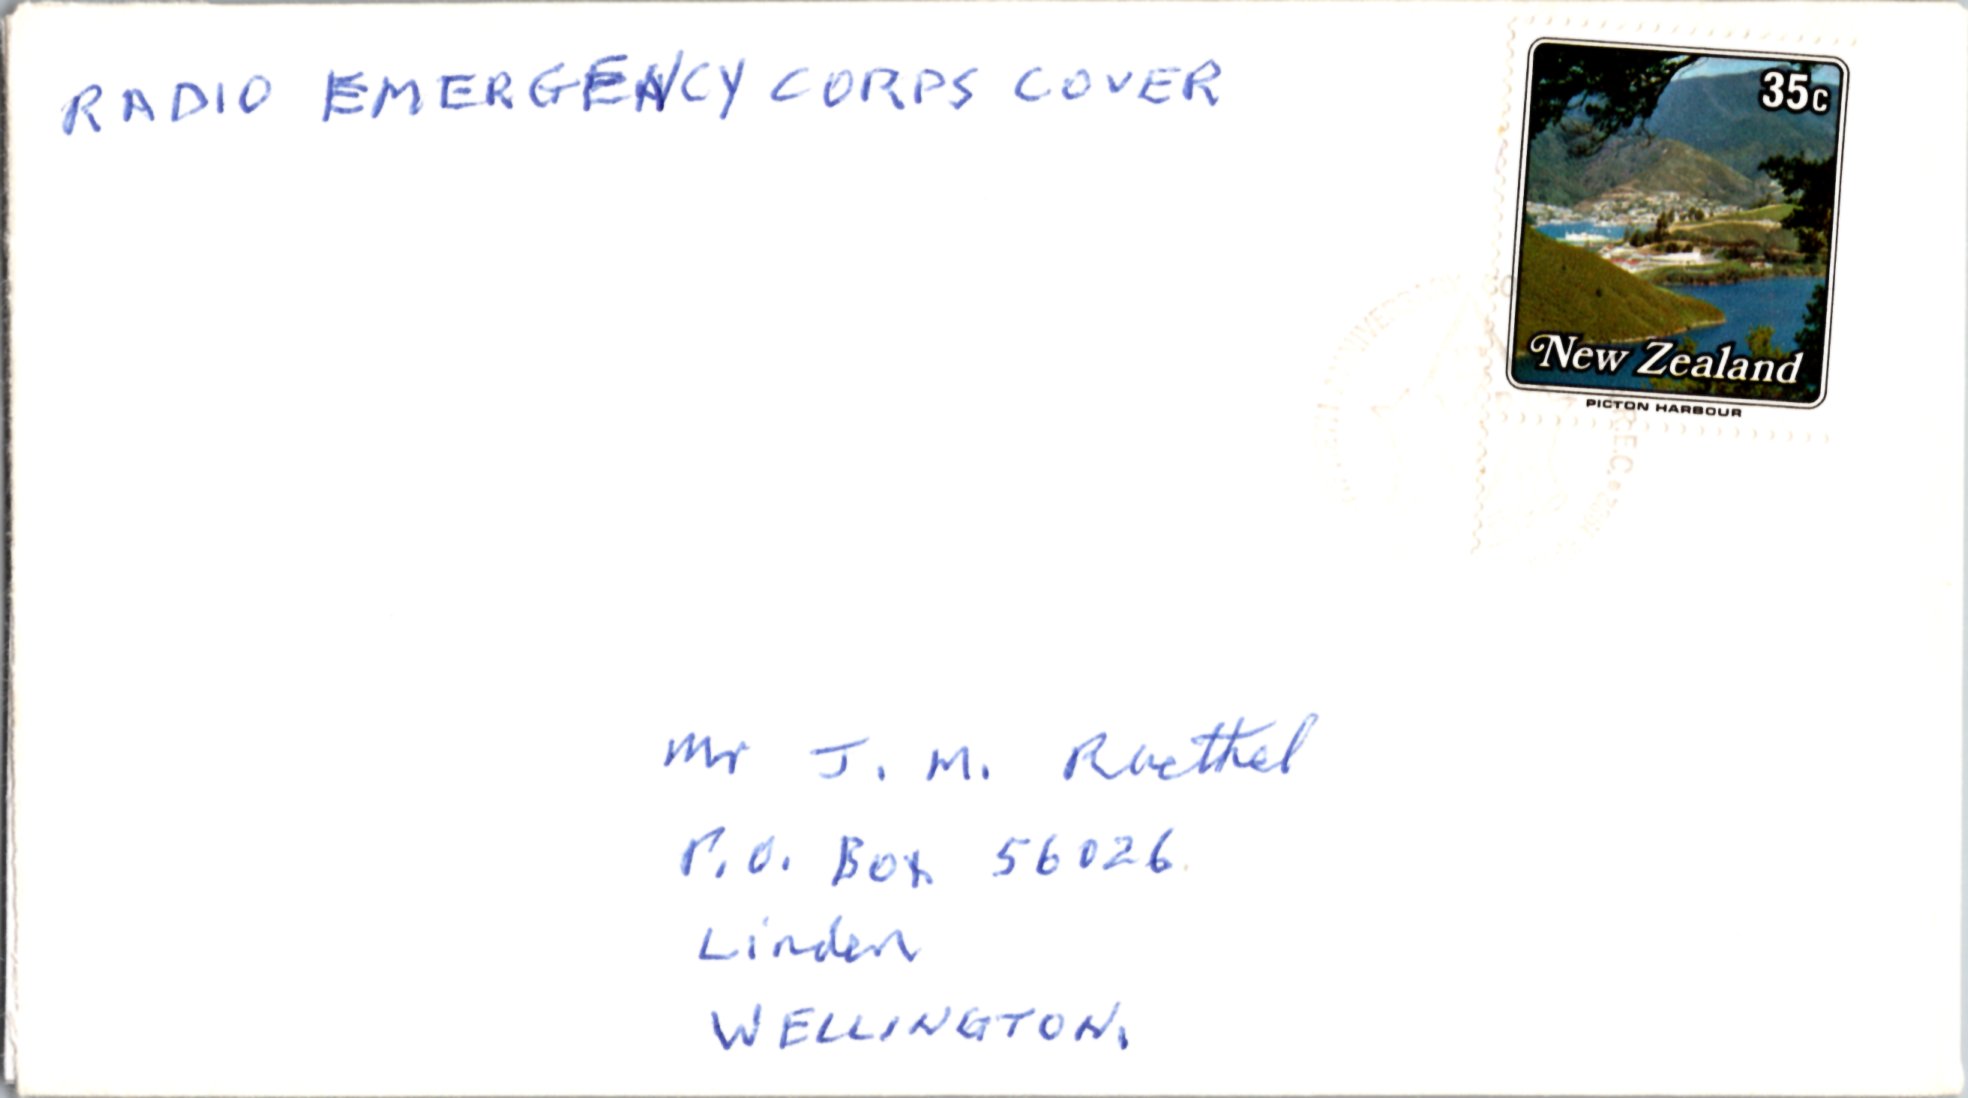 RADIO EMERGENCY CORPS COVER
35c
New Zealand
PICTON HARBOUR
R.E.C.
Mr J. M. Raethel
P.O. Box 56026
Linden
WELLINGTON.